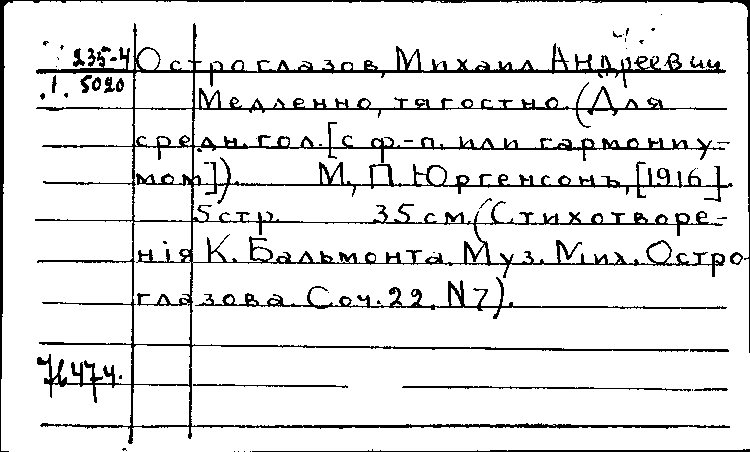 235-4 Остроглазов, Михаил Андреевич
1. 5020 Медленно, тягостно. (Для
средн. гол. [с ф.-п. или гармониу-
мом]). М., П. Юргенсонъ, [1916].
5 стр. 35 см. (Стихотворе-
нiя К. Бальмонта. Муз. Мих. Остро-
глазова. Соч. 22. N 7).
76474.